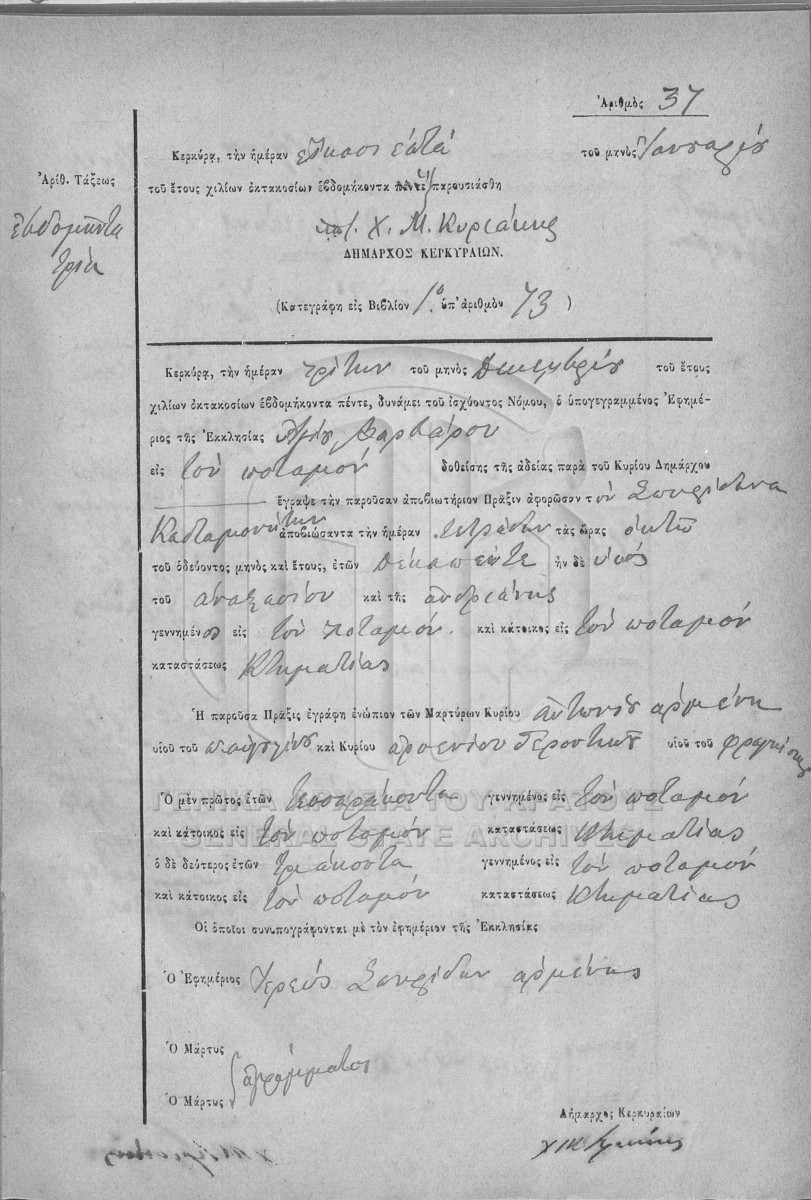 Ἀριθμὸς 37
Κερκύρᾳ, τὴν ἡμέραν εἴκοσι ἑπτά τοῦ μηνὸς Ἰανουαρίου
Ἀριθ. Τάξεως
τοῦ ἔτους χιλίων ὀκτακοσίων ἑβδομήκοντα παρουσιάσθη
ἑβδομήκοντα
τρία
Χ. Μ. Κυριάκης
ΔΗΜΑΡΧΟΣ ΚΕΡΚΥΡΑΙΩΝ.
(Κατεγράφη εἰς Βιβλίον 1ο. ὑπ' ἀριθμὸν 73)
Κερκύρᾳ, τὴν ἡμέραν τρίτην τοῦ μηνὸς Δεκεμβρίου τοῦ ἔτους
χιλίων ὀκτακοσίων ἑβδομήκοντα πέντε, δυνάμει τοῦ ἰσχύοντος Νόμου, ὁ ὑπογεγραμμένος Ἐφημέ-
ριος τῆς Ἐκκλησίας Ἁγίου Βαρβάρου
εἰς τὸν ποταμόν δοθείσης τῆς ἀδείας παρὰ τοῦ Κυρίου Δημάρχου
ἔγραψε τὴν παροῦσαν ἀποβιωτήριον Πρᾶξιν ἀφορῶσαν τὸν Σπυρίδωνα
Κασταμονίτην ἀποβιώσαντα τὴν ἡμέραν τετράδην τὰς ὥρας ὀκτὼ
τοῦ ὁδεύοντος μηνὸς καὶ ἔτους, ἐτῶν δέκα πέντε ἦν δὲ υἱός
τοῦ ἀναστασίου καὶ τῆς ἀνδριάνης
γεννημένος εἰς τὸν ποταμόν. καὶ κάτοικος εἰς τὸν ποταμόν
καταστάσεως κτηματίας
Ἡ παροῦσα Πρᾶξις ἐγράφη ἐνώπιον τῶν Μαρτύρων Κυρίου ἀντωνίου ἀρμένη
υἱοῦ τοῦ καὶ Κυρίου ἀρσενίου υἱοῦ τοῦ φραγκίσκου
Ὁ μὲν πρῶτος ἐτῶν τεσσαράκοντα γεννημένος εἰς τὸν ποταμόν
ΓΕΝΙΚΑ ΑΡΧΕΙΑ ΤΟΥ ΚΡΑΤΟΥΣ
καὶ κάτοικος εἰς τὸν ποταμόν καταστάσεως κτηματίας
GENERAL STATE ARCHIVES
ὁ δὲ δεύτερος ἐτῶν τριάκοντα γεννημένος εἰς τὸν ποταμόν
καὶ κάτοικος εἰς τὸν ποταμόν καταστάσεως κτηματίας
Οἱ ὁποῖοι συνυπογράφονται μὲ τὸν ἐφημέριον τῆς Ἐκκλησίας
Ὁ Ἐφημέριος Ἱερεύς Σπυρίδων ἀρμένης
Ὁ Μάρτυς
ἀγράμματοι
Ὁ Μάρτυς
Δήμαρχος Κερκυραίων
Χ Μ Κυριάκης